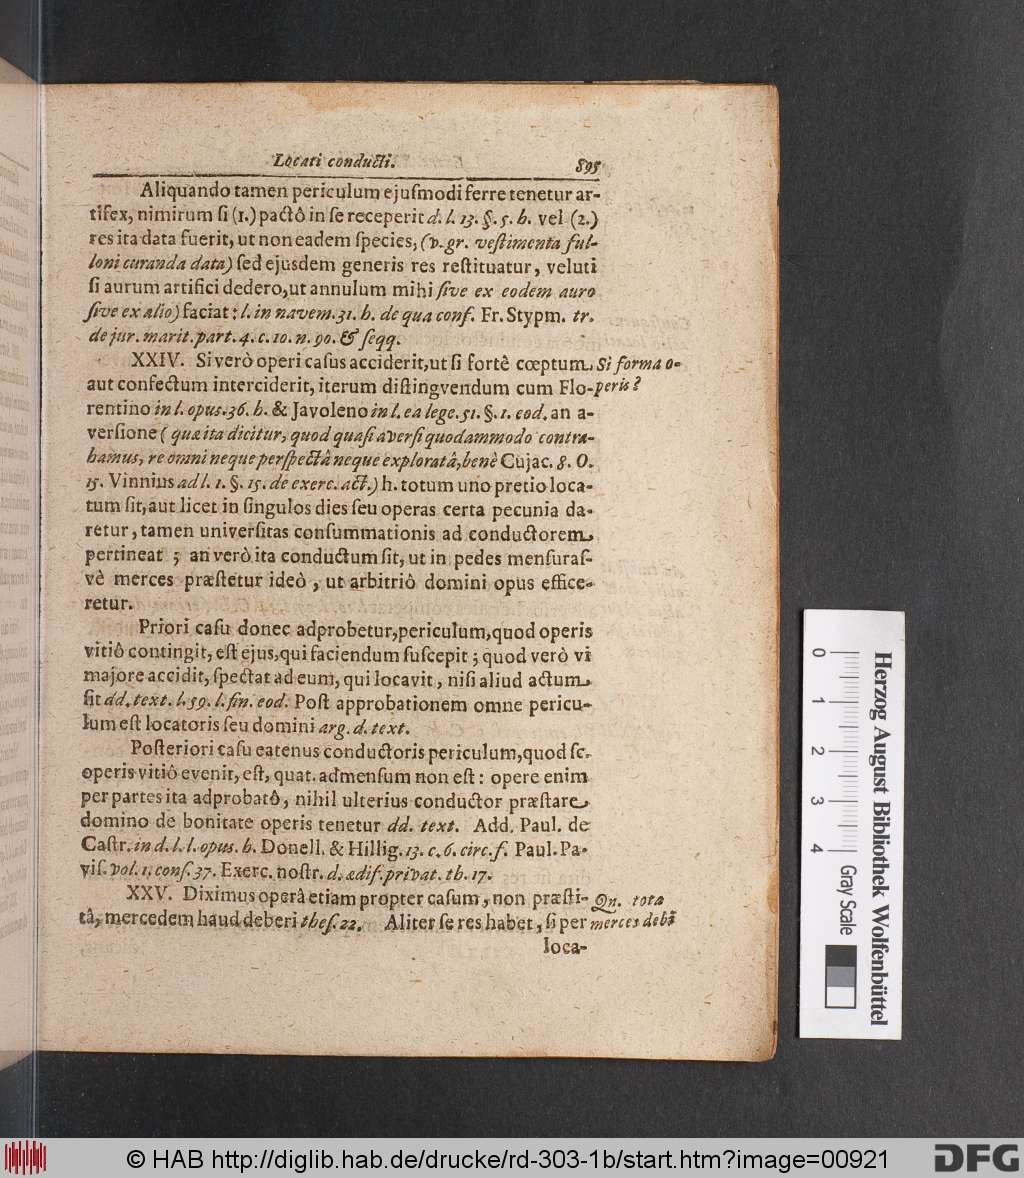 Locati conducti. 895
Aliquando tamen periculum ejuſmodi ferre tenetur ar-
tifex, nimirum ſi (1.) pactô in ſe receperit d. l. 13. §. 5. h. vel (2.)
res ita data fuerit, ut non eadem ſpecies, (v. gr. veſtimenta ful-
loni curanda data) ſed ejusdem generis res reſtituatur, veluti
ſi aurum artifici dedero, ut annulum mihi ſive ex eodem auro
ſive ex alio) faciat: l. in navem. 31. h. de qua conf. Fr. Stypm. tr.
de jur. marit. part. 4. c. 10. n. 90. & ſeqq.
XXIV. Si verò operi caſus acciderit, ut ſi fortê cœptum Si forma o-
aut confectum interciderit, iterum diſtingvendum cum Flo- peris?
rentino in l. opus. 36. h. & Javoleno in l. ea lege. 51. §. 1. eod. an a-
verſione (quæ ita dicitur, quod quaſi averſi quodammodo contra-
hamus, re omni neque perſpectâ neque exploratâ, benè Cujac. 8. O.
15. Vinnius ad l. 1. §. 15. de exerc. act.) h. totum uno pretio loca-
tum ſit, aut licet in ſingulos dies ſeu operas certa pecunia da-
retur, tamen univerſitas conſummationis ad conductorem
pertineat; an verò ita conductum ſit, ut in pedes menſuraſ-
vè merces præſtetur ideò, ut arbitriò domini opus effice-
retur.
Priori caſu donec adprobetur, periculum, quod operis
vitiô contingit, eſt ejus, qui faciendum ſuſcepit; quod verò vi
majore accidit, ſpectat ad eum, qui locavit, niſi aliud actum
ſit dd. text. l. 59. l. fin. eod. Poſt approbationem omne pericu-
lum eſt locatoris ſeu domini arg. d. text.
Poſteriori caſu eatenus conductoris periculum, quod ſc.
operis vitiô evenit, eſt, quat. admenſum non eſt: opere enim
per partes ita adprobatô, nihil ulterius conductor præſtare
domino de bonitate operis tenetur dd. text. Add. Paul. de
Caſtr. in d. l. l. opus. h. Donell. & Hillig. 13. c. 6. circ. f. Paul. Pa-
viſ. vol. 1. conſ. 37. Exerc. noſtr. d. ædif. privat. th. 17.
XXV. Diximus operâ etiam propter caſum, non præſti- Qn. tota
tâ, mercedem haud deberi theſ. 22. Aliter ſe res habet, ſi per merces debẽ
loca-
0 1 2 3 4
Herzog August Bibliothek Wolfenbüttel
Gray Scale
© HAB http://diglib.hab.de/drucke/rd-303-1b/start.htm?image=00921
DFG